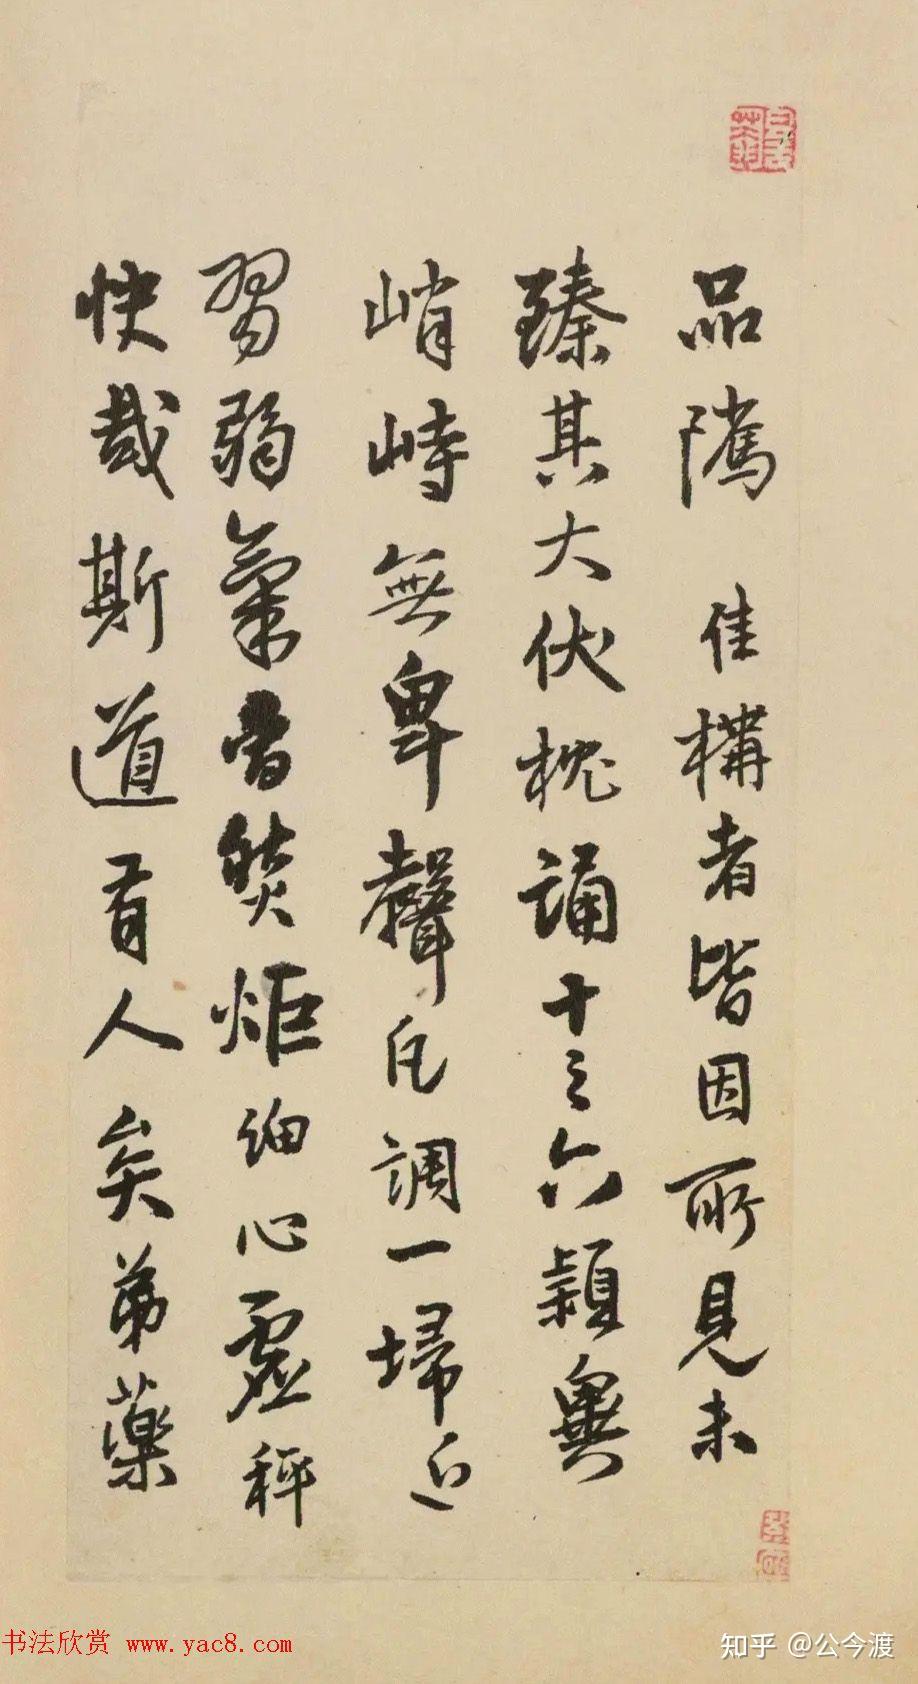 品隲佳構者皆因所見未
臻其大伏枕誦十之六穎異
峭峙無卑聲凡調一埽近
習弱氣昏燄炬細心虛秤
快哉斯道有人矣弟藥
书法欣赏 www.yac8.com
知乎 @公今渡